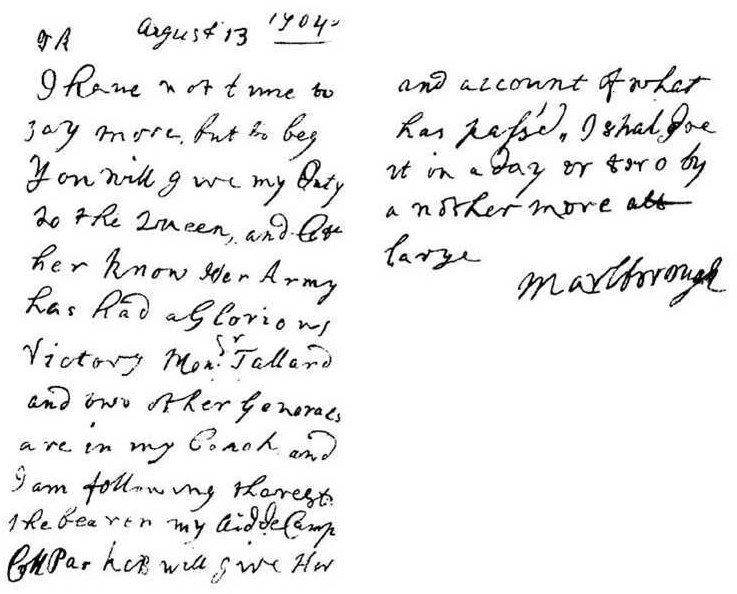 August 13 1704
I have not time to
say more, but to beg
You will give my Duty
to the Queen, and let
her know Her Army
has had a Glorious
Victory Mon.sr Tallard
and two other Generals
are in my Coach and
I am following the rest.
the bearer my Aid de Camp
Coll Parker will give Her
and account of what
has pass'd, I shal doe
it in a day or two by
another more att
large
Marlborough